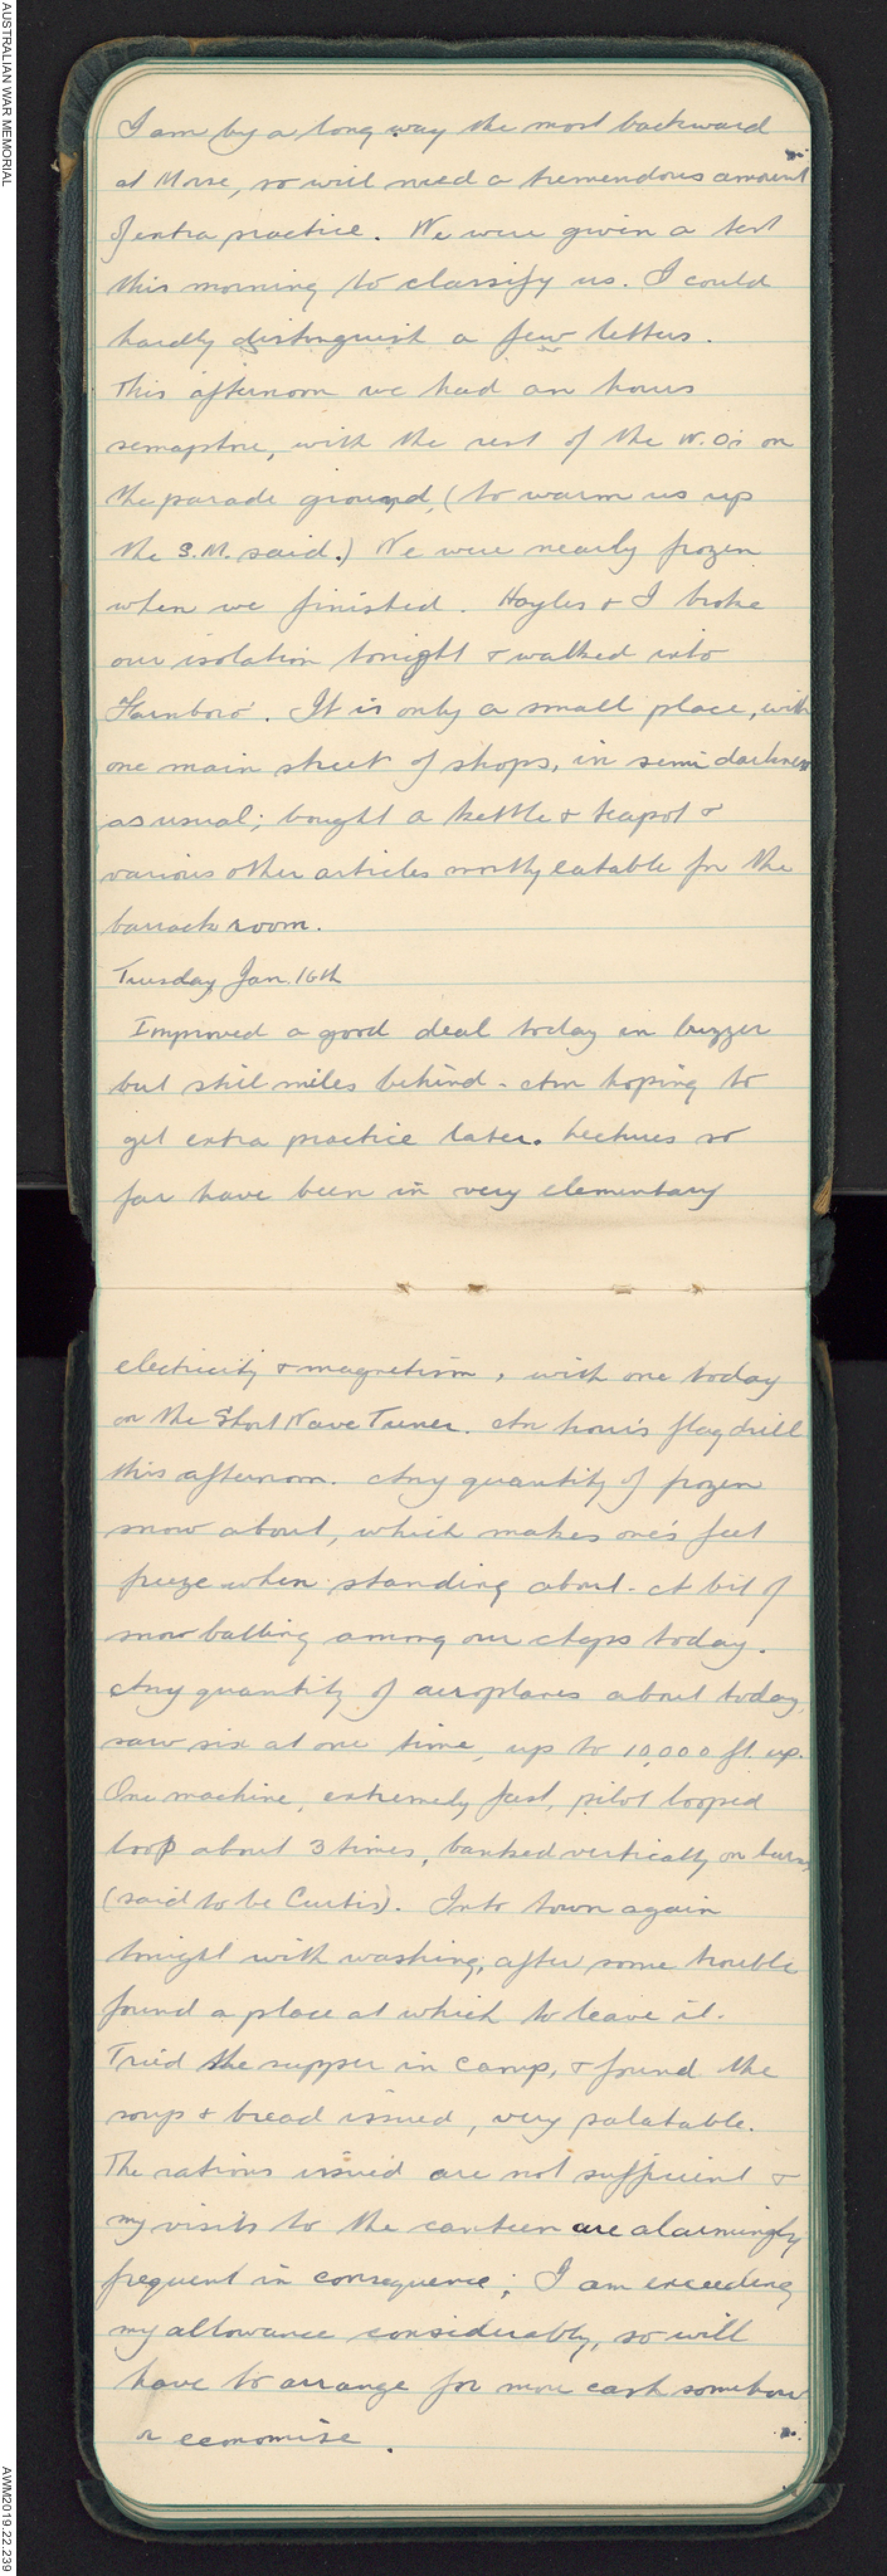 AUSTRALIAN WAR MEMORIAL
I am by a long way the most backward
at Morse, so will need a tremendous amount
of extra practice. We were given a test
this morning to classify us. I could
hardly distinguish a few letters.
This afternoon we had an hours
semaphore, with the rest of the W.O's on
the parade ground, (to warm us up
the S.M. said.) We were nearly frozen
when we finished. Hayles & I broke
our isolation tonight & walked into
Farnboro'. It is only a small place, with
one main street of shops, in semi darkness
as usual; bought a kettle & teapot &
various other articles mostly eatable for the
barrack room.
Tuesday Jan. 16th
Improved a good deal today in buzzer
but still miles behind. Am hoping to
get extra practice later. Lectures so
far have been in very elementary
electricity & magnetism, with one today
on the Short Wave Tuner. An hour's flag drill
this afternoon. Any quantity of frozen
snow about, which makes one's feet
freeze when standing about. A bit of
snowballing among our chaps today.
Any quantity of aeroplanes about today,
saw six at one time, up to 10,000 ft. up.
One machine, extremely fast, pilot looped
loop about 3 times, banked vertically on turns
(said to be Curtis). Into town again
tonight with washing; after some trouble
found a place at which to leave it.
Tried the supper in camp, & found the
soup & bread issued, very palatable.
The rations issued are not sufficient &
my visits to the canteen are alarmingly
frequent in consequence; I am exceeding
my allowance considerably, so will
have to arrange for more cash somehow
or economise.
AWM2019.22.239